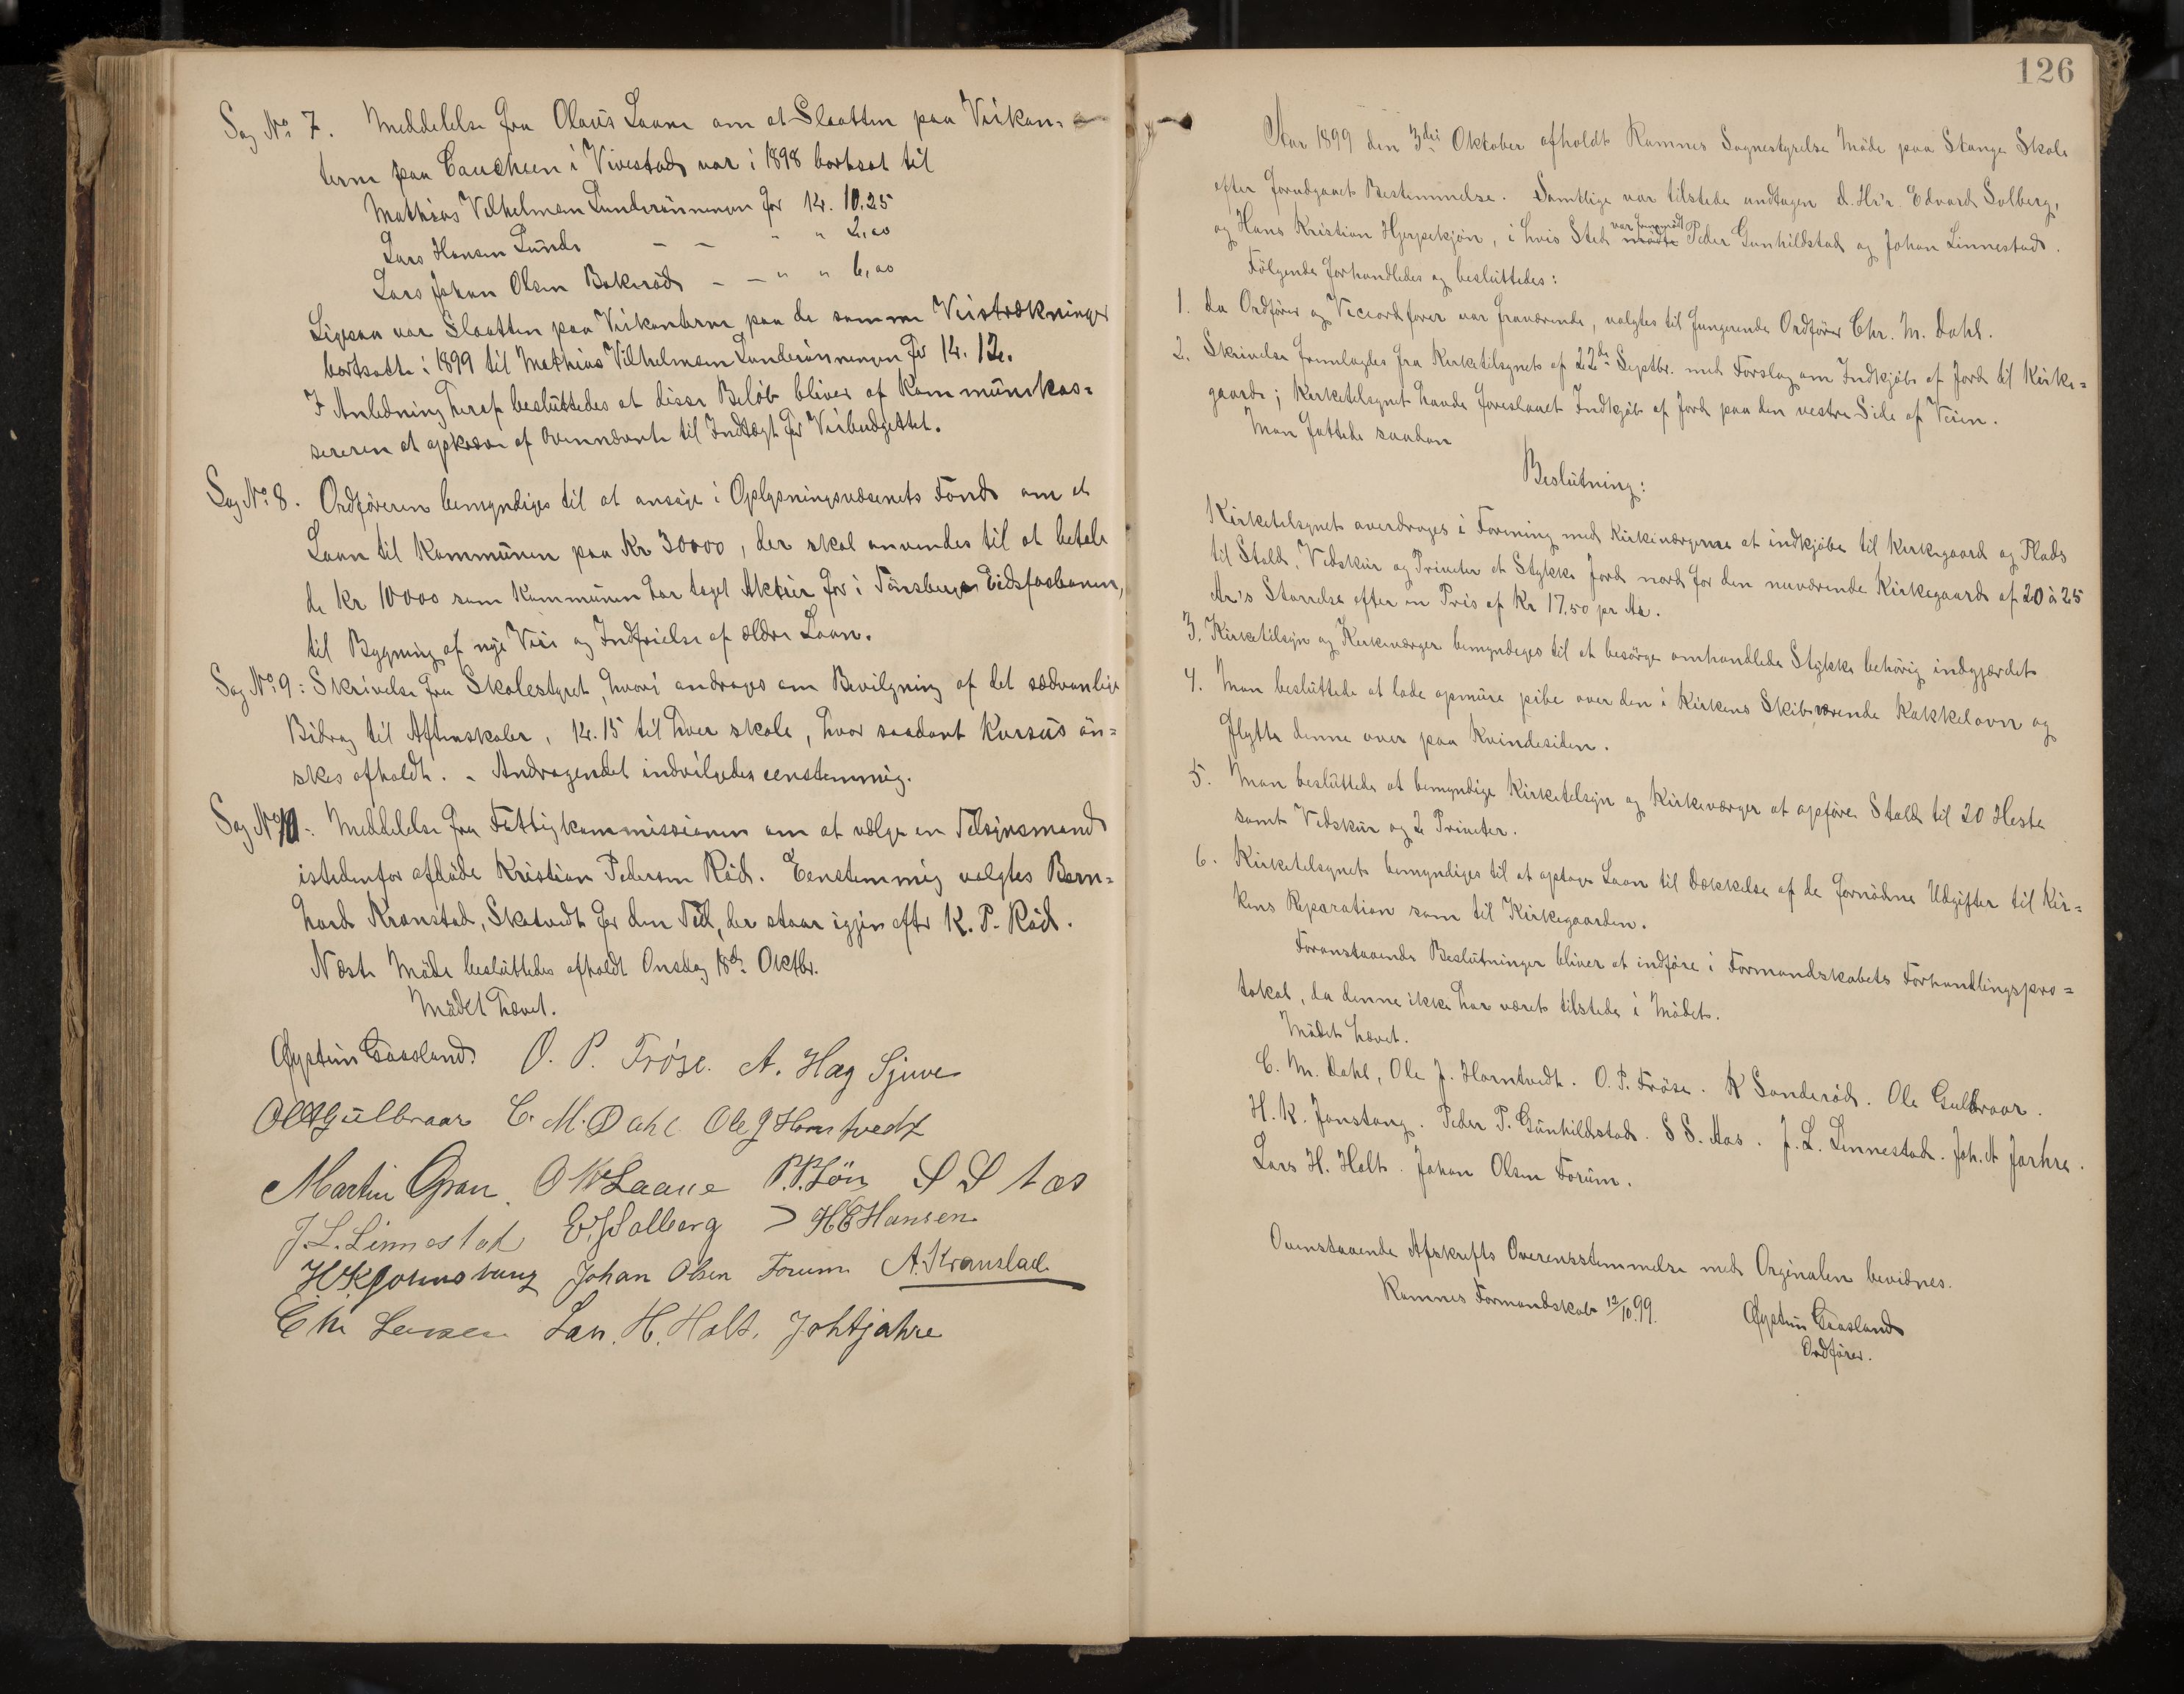 Sag No. 7. Meddelelse fra Olaus Laane om at Slaatten paa Veikan-
terne paa Caucheen i Vivestad var i 1898 bortsat til
Mathias Vilhelmsen Lunderönningen for Kr. 10.25
Lars Hansen Lunde — — " " 2,00
Lars Johan Olsen Bakeröd — — " " 6,00
Ligesaa var Slaatten paa Veikanterne paa de samme Veistrækninger
bortsatte i 1899 til Mathias Vilhelmsen Lunderönningen for Kr. 12.
I Anledning heraf besluttedes at disse Belöb bliver af Kommunekas=
sereren at opkræve af Ovennævnte til Indtægt for Veibudgettet.
Sag No. 8. Ordföreren bemyndiges til at ansöge i Oplysningsvæsenets Fond om et
Laan til Kommunen paa Kr 30000, der skal anvendes til at betale
de Kr 10000 som Kommunen har taget Aktier for i Tönsberg Eidsfosbanen,
til Bygning af nye Veie og Indfrielse af ældre Laan.
Sag No. 9: Skrivelse fra Skolestyret, hvori androges om Bevilgning af det sædvanlige
Bidrag til Aftenskoler, Kr. 15 til hver skole, hvor saadant Kursus ön=
skes afholdt. - Andragendet indvilgedes eenstemmig.
Sag No. 10. Meddelelse fra Fattigkommissionen om at vælge en Tilsynsmand
istedenfor afdöde Kristian Pedersen Röd. Eenstemmig valgtes Bern=
hard Kranstad, Sketvedt for den Tid, der staar igjen efter K. P. Röd.
Næste Möde besluttedes afholdt Onsdag 18de Oktbr.
Mödet hævet.
Øystein Gaasland O. P. Fröse. A. Hag Sjuve
Ole Gulbraar C. M. Dahl Ole J Horntvedt
Martin Gran O Laane P.P. Lön S S Aas
J. L. Linnestad E. Solberg H E Hansen
H. K. Johnstang Johan Olsen Forum A. Kranstad
Chr Larsen Lars. H. Holt. Joh A Jahre
126
Aar 1899 den 3die Oktober afholdt Ramnes Sognestyrelse Möde paa Stange Skole
efter forudgaaet Bestemmelse. Samtlige var tilstede undtagen d.Hr'r. Edvard Solberg,
og Hans Kristian Hjerpekjön, i hvis Sted var fremmödt mødte Peder Gunhildstad og Johan Linnestad.
Fölgende forhandledes og besluttedes:
1. Da Ordförer og Viceordförer var fraværende, valgtes til fungerende Ordförer Chr. M. Dahl.
2. Skrivelse fremlagdes fra Kirketilsynet af 22de Septbr. med Forslag om Indkjöb af Jord til Kirke=
gaard; Kirketilsynet havde foreslaaet Indkjöb af Jord paa den vestre Side af Veien.
Man fattede saadan
Beslutning:
Kirketilsynet overdrages i Forening med Kirkeværgerne at indkjöbe til Kirkegaard og Plads
til Stald, Vedskur og Priveter et Stykke Jord nord for den nuværende Kirkegaard af 20 à 25
Ar's Störrelse efter en Pris af Kr 17,50 pr Ar.
3. Kirketilsyn og Kirkeværger bemyndiges til at besörge omhandlede Stykke behörig indgjærdet
4. Man besluttede at lade opmure pibe over den i Kirkens Skib værende Kakkelovn og
flytte denne over paa Kvindesiden.
5. Man besluttede at bemyndige Kirketilsyn og Kirkeværger at opföre Stald til 20 Heste
samt Vedskur og 2 Priveter.
6. Kirketilsynet bemyndiges til at optage Laan til Dækkelse af de fornödne Udgifter til Kir=
kens Reparation som til Kirkegaarden.
Foranstaaende Beslutninger bliver at indföre i Formandskabets Forhandlingspro=
tokol, da denne ikke har været tilstede i Mödet.
Mödet hævet.
C. M. Dahl, Ole J. Horntvedt. O. P. Fröse. K Sanderöd. Ole Gulbraar.
H. K. Jonstang. Peder P. Gunhildstad. S S. Aas. J. L. Linnestad. Joh. A Jarhre.
Lars H. Holt. Johan Olsen Forum.
Ovenstaaende Afskrifts Overensstemmelse med Orginalen bevidnes.
Ramnes Formandskab 12/10.99.
Øystein Gaasland
Ordförer.